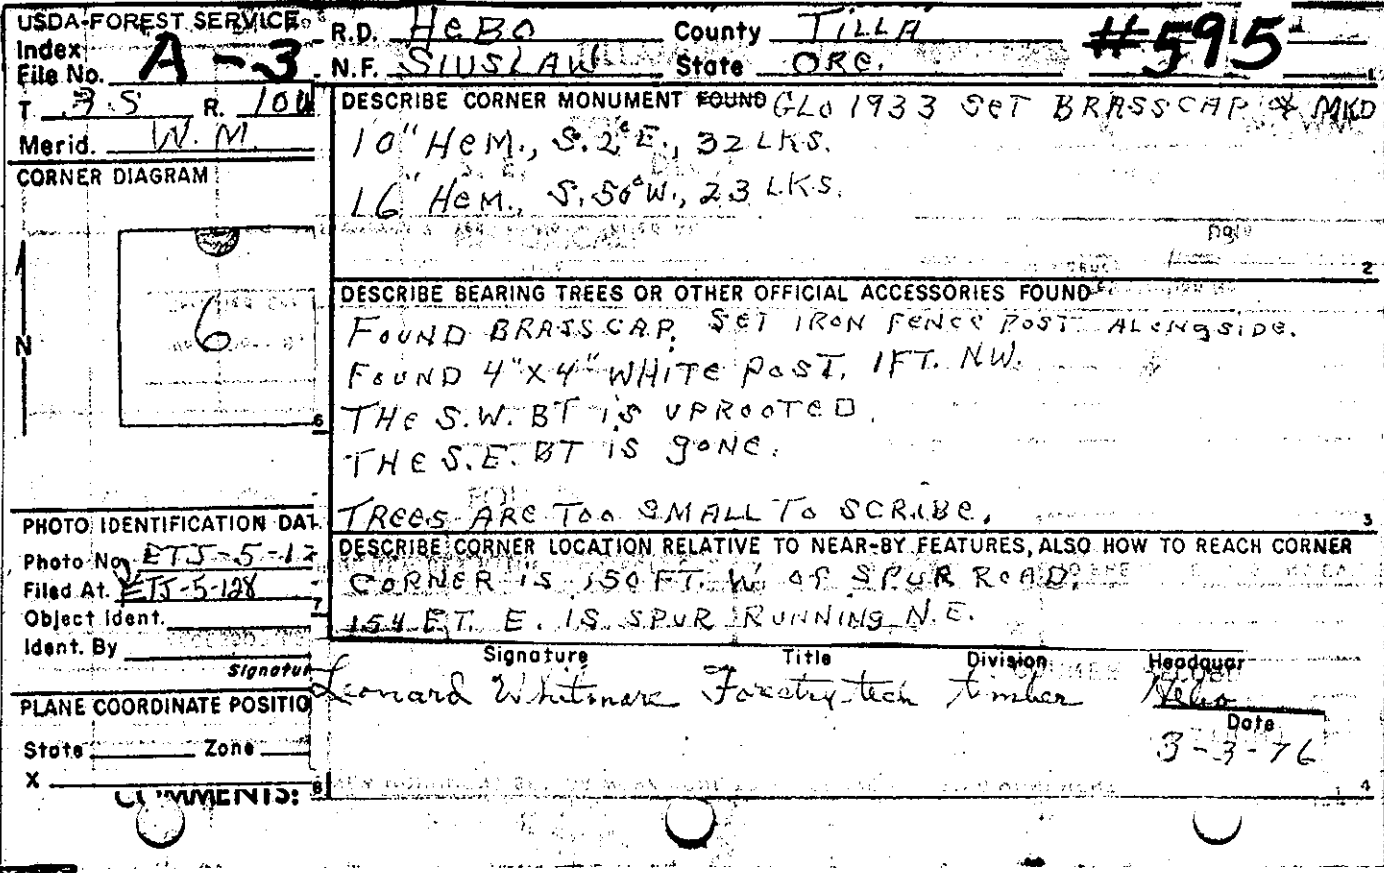 USDA-FOREST SERVICE R.D. HEBO County TILLA #595
Index File No. A-3 N.F. SIUSLAW State ORE. 1
T. 3 S R. 10W
Merid. W. M.
DESCRIBE CORNER MONUMENT FOUND GLO 1933 SET BRASSCAP & MKD
10" HEM., S. 2° E., 32 LKS.
16" HEM., S. 50° W., 23 LKS.
2
CORNER DIAGRAM
N
6
6
DESCRIBE BEARING TREES OR OTHER OFFICIAL ACCESSORIES FOUND
FOUND BRASSCAP. SET IRON FENCE POST ALONGSIDE.
FOUND 4"X4" WHITE POST, 1FT. NW.
THE S.W. BT IS UPROOTED.
THE S.E. BT IS GONE.
TREES ARE TOO SMALL TO SCRIBE.
3
PHOTO IDENTIFICATION DAT
Photo No. ETJ-5-12
Filed At. ETJ-5-128
7
Object Ident.
Ident. By
Signatur
DESCRIBE CORNER LOCATION RELATIVE TO NEAR-BY FEATURES, ALSO HOW TO REACH CORNER
CORNER IS 150 FT. W. OF SPUR ROAD.
154 FT. E. IS SPUR RUNNING N.E.
Signature Title Division Headquar
Leonard Whitmore Forestry tech timber Hebo
Date
3-3-76
4
PLANE COORDINATE POSITIO
State Zone
X
8
COMMENTS: